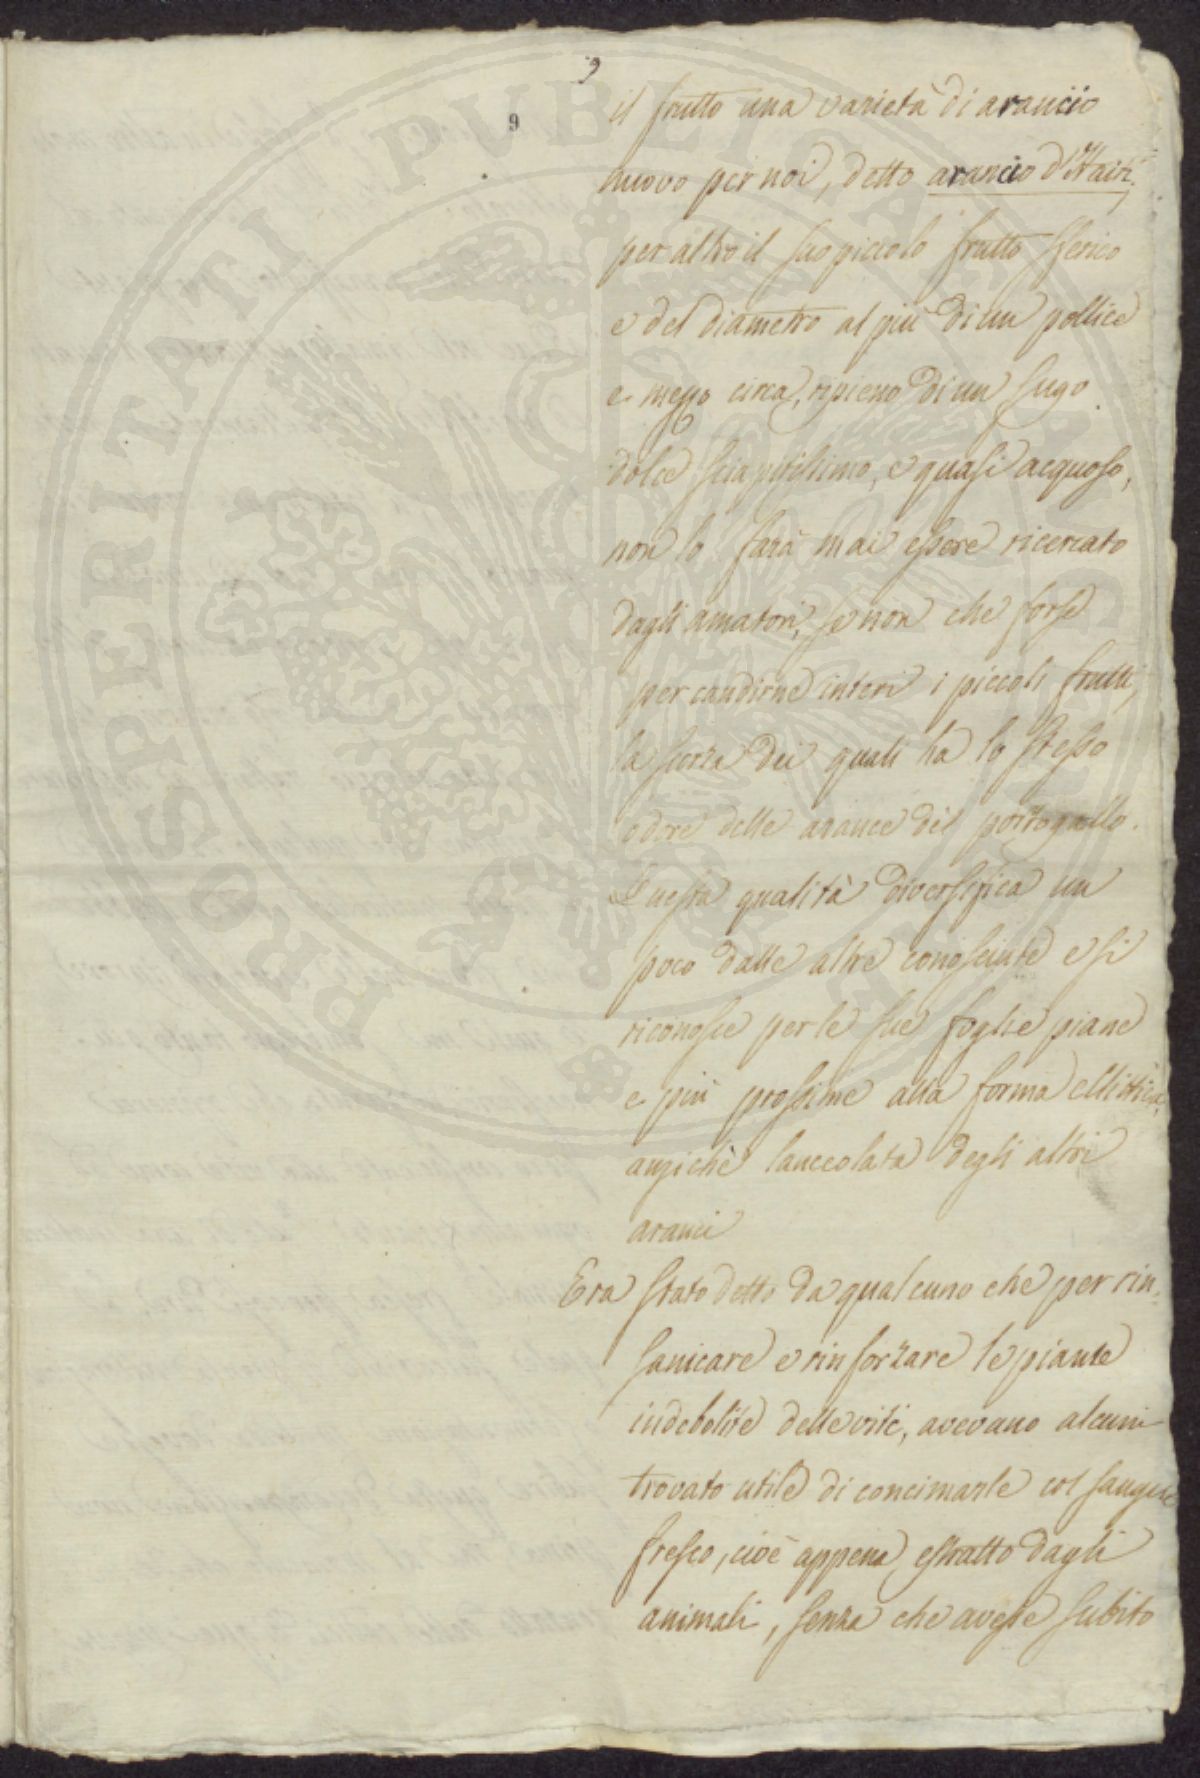 9
9
il frutto una varietà di arancio
nuovo per noi, detto arancio d'Haiti,
per altro il suo piccolo frutto sferico
e del diametro al più di un pollice
e mezzo circa, ripieno di un sugo
dolce sciapitissimo, e quasi acquoso,
non lo farà mai essere ricercato
dagli amatori, se non che forse
per candirne interi i piccoli frutti,
la scorza dei quali ha lo stesso
odore delle arance del portogallo.
Questa qualità diversifica un
poco dalle altre conosciute e si
riconosce per le sue foglie piane
e più prossime alla forma ellittica,
anzichè lanceolata degli altri
aranci
Era stato detto da qualcuno che per rin-
sanicare e rinforzare le piante
indebolite delle viti, avevano alcuni
trovato utile di concimarle col sangue
fresco, cioè appena estratto dagli
animali, senza che avesse subito
PROSPERITATI PUBLICAE